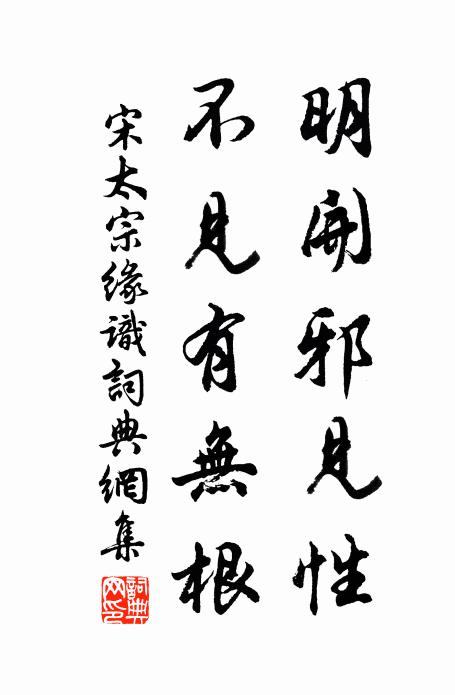 明開邪見性
不見有無根
宋太宗緣識詞典網集
詞典網印